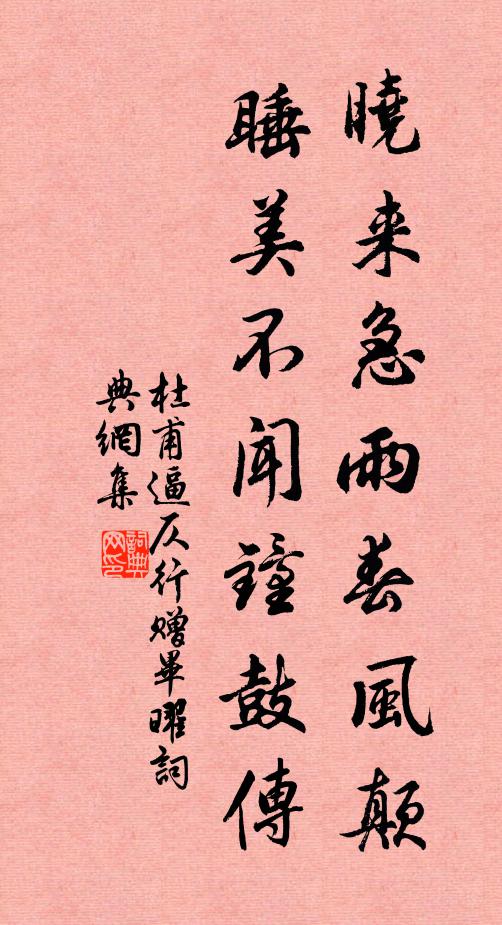 曉来急雨春風顛
睡美不聞鐘鼓傳
杜甫逼仄行贈畢曜詞
典網集
詞典
网印